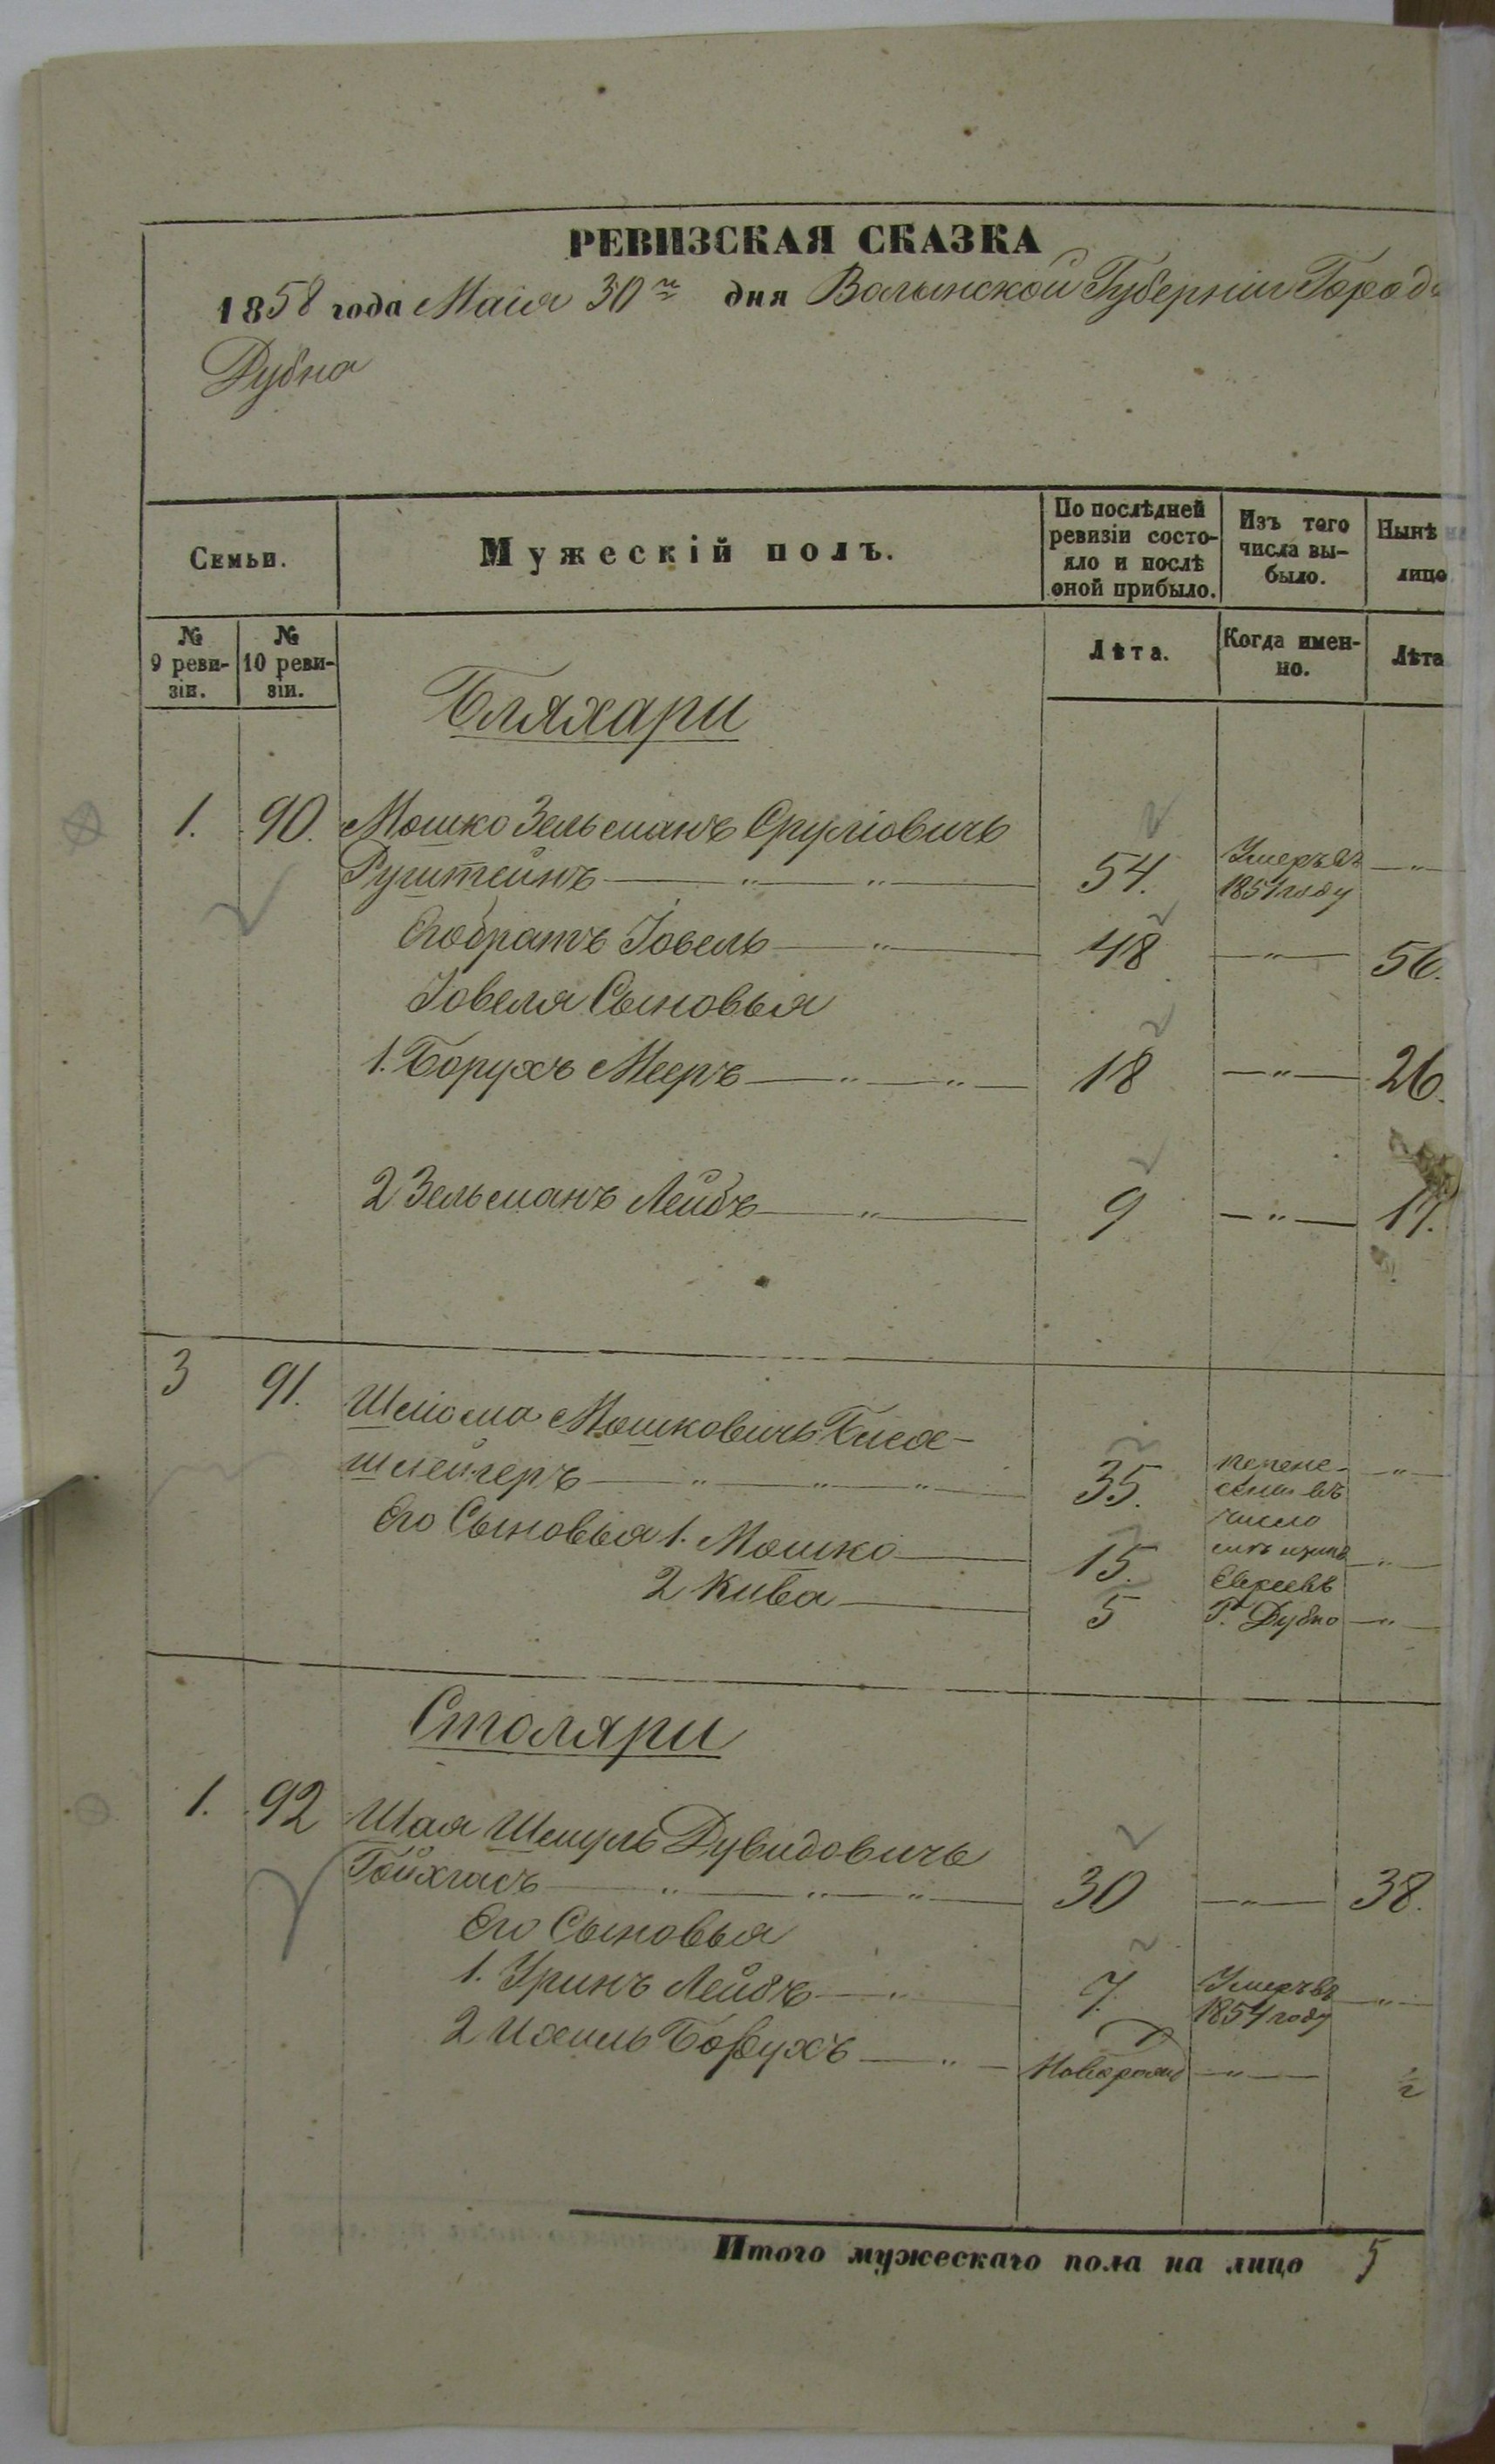 РЕВИЗСКАЯ СКАЗКА
1858 года Маія 30го дня Волынской Губерніи Города
Дубна
Семьи.
Мужескій полъ.
По послѣдней ревизіи состо-яло и послѣ оной прибыло.
Изъ того числа вы-было.
Нынѣ на лицо
№ 9 реви-зіи.
№ 10 реви-зіи.
Лѣта.
Когда имен-но.
Лѣта
Бляхари
1. 90. Мошко Зельманъ Сруліовичъ
Рушштейнъ — „ — „ — 54. Умеръ въ 1851 году — „ —
Его братъ Іовель — „ — 48 — „ — 56.
Іовеля Сыновья
1. Борухъ Мееръ — „ — „ — 18 — „ — 26.
2 Зельманъ Лейбъ — „ — 9 — „ — 17.
3 91. Шліома Мошковичъ Блех-
шлейгеръ — „ — „ — „ — 35. перене-сены въ — „ —
Его Сыновья 1. Мошко — 15. число мѣщанъ — „ —
2 Кива — 5 Евреевъ Г. Дубно — „ —
Столяри
1. 92 Шая Шмуль Дувидовичъ
Гойхгасъ — „ — „ — „ — 30 — „ — 38.
Его Сыновья
1. Уринъ Лейбъ — „ — 7. Умеръ въ 1854 году — „ —
2 Ихиль Борухъ — „ — Новорожд — „ — ½
Итого мужескаго пола на лицо 5